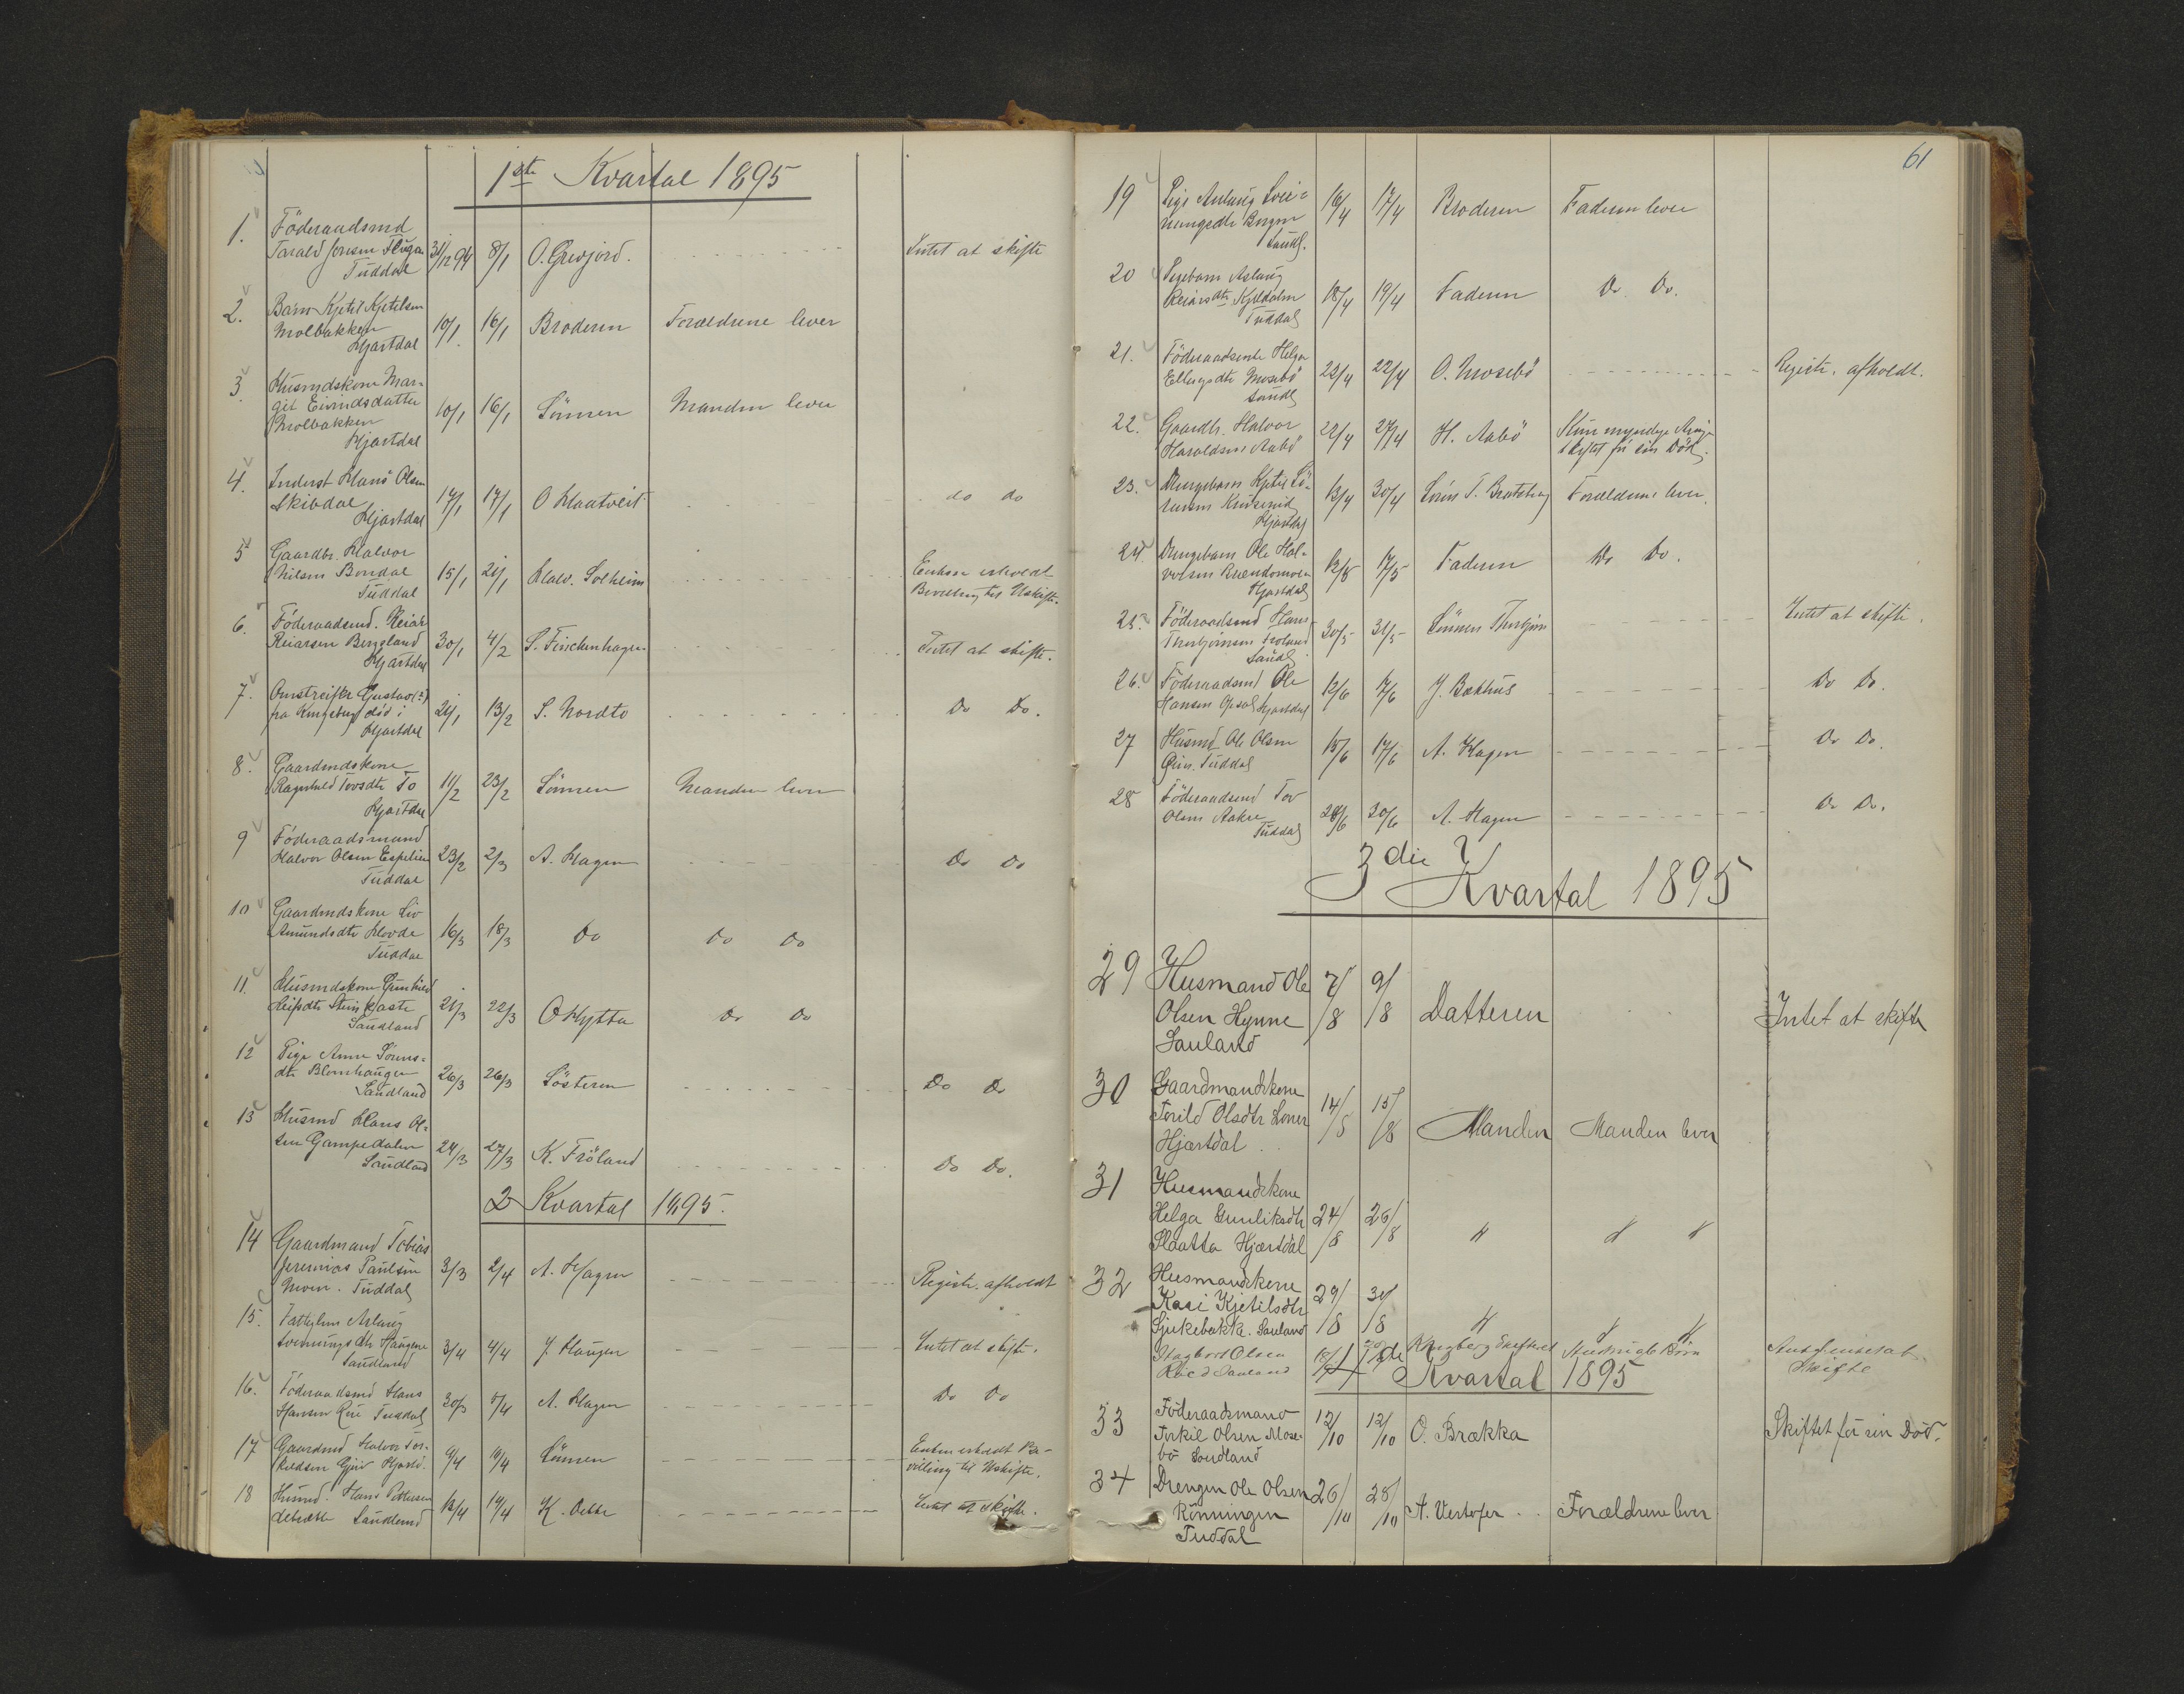 1ste Kvartal 1895
1. Föderaadsmd
Tarald Jonsen
Tuddal 31/12 94 8/1 O. Grivjord. Intet at skifte
2. Barn Kjetil Kjetilsen
Molbakken
Hjartdal 10/1 16/1 Broderen Forældrene lever
3. Husmdskone Mar-
git Eivindsdatter
Molbakken
Hjartdal 10/1 16/1 Sönnen Manden lever
4. Inderst Hans Olsen
Skibdal
Hjartdal 14/1 17/1 O Haatveit do do
5 Gaardbr. Halvor
Nilsen Bondal
Tuddal 15/1 21/1 Halv. Solheim Enken erholdt
Bevilling til Uskifte.
6. Föderaadsmd. Reiar
Reiarsen Bergland
Hjartdal 30/1 4/2 S. Finckenhagen Intet at skifte.
7. Omstreifer Gustav (?)
fra Kongsberg död i
Hjartdal 21/1 13/2 S. Nordbö Do Do.
8. Gaardmdskone
Ragnhild Tovsdtr Bö
Hjartdal 11/2 23/2 Sönnen Manden lever
9 Föderaadsmand
Halvor Olsen Espelien
Tuddal 23/2 2/3 A. Hagen Do Do
10 Gaardmdskone Liv
Amundsdtr Hovde
Tuddal 16/3 18/3 Do Do Do
11. Husmdskone Gunhild
Leifsdtr Steinkaste
Saudland 21/3 22/3 O Hytta Do Do
12 Pige Anne
dtr Blomhaugen
Saudland 26/3 26/3 Sösteren Do Do
13 Husmd Hans Ol-
sen Gampedalen
Saudland 24/3 27/3 K. Fröland Do Do.
2 Kvartal 1895.
14 Gaardmand Tobias
Jeremias Paulsen
Moen. Tuddal 3/3 2/4 A. Hagen Registr. afholdt
15. Aslaug
Sveinungsdtr Haugene
Saudland 3/4 4/4 J. Haugen Intet at skifte.
16. Föderaadsmd Hans
Hansen Rui Tuddal 30/3 5/4 A. Hagen Do Do
17 Gaardmd Halvor Tor-
kildsen Gjuv Hjartd. 9/4 10/4 Sönnen Enken erholdt Be-
villing til Uskifte.
18 Husmd. Hans Pettersen
Saudland 13/4 14/4 K. Intet at skifte.
61
19 Pige Aslaug Svei-
nungsdtr Bergen
Saudl. 16/4 17/4 Broderen Faderen lever
20 Pigebarn Aslaug
Reiarsdtr Kjeldalen
Tuddal 18/4 19/4 Faderen Do Do.
21. Föderaadsenke Helga
Mosebö
Saudl 22/4 22/4 O. Mosebö Registr. afholdt.
22. Gaardbr. Halvor
Haraldsen Aabö 22/4 27/4 H. Aabö Kun myndige Arvinger
skiftet för sin Död.
23. Drengebarn Kjetil Sö-
rensen
Hjartdal 13/4 30/4 Sörin T. Bratsberg Forældrene lever.
24. Drengebarn Ole Hal-
vorsen
Hjartdal 12/5 17/5 Faderen Do Do.
25. Föderaadsmd Hans
Thorbjörnsen Froland
Saudl. 30/5 31/5 Sönnen Thorbjörn Intet at skifte.
26. Föderaadsmd Ole
Hansen Hjartdal 12/6 17/6 J. Bækhus Do Do.
27 Husmd Ole Olsen
Tuddal 15/6 17/6 A. Hagen Do Do.
28 Föderaadsmd Tov
Olsen Aakre
Tuddal 28/6 30/6 A. Hagen Do Do.
3die Kvartal 1895
29 Husmand Ole
Olsen Hynne
Sauland 7/8 9/8 Datteren Intet at skifte
30 Gaardmandskone
Torild Olsdtr Loner
Hjartdal 14/8 15/8 Manden Manden lever
31 Husmandskone
Helga Gunliksdtr
Slaatta Hjartdal 24/8 26/8 " " "
32 Husmandskone
Kari Kjetilsdtr
Sjukebakk. Sauland 29/8 31/8 " " "
Olsen
Sauland
Skifte
4de Kvartal 1895
33 Föderaadsmand
Torkil Olsen Mose-
bö Saudland 12/10 12/10 O. Brækka Skiftet för sin Död.
34 Drengen Ole Olsen
Rönningen
Tuddal 26/10 28/10 A. Forældrene lever